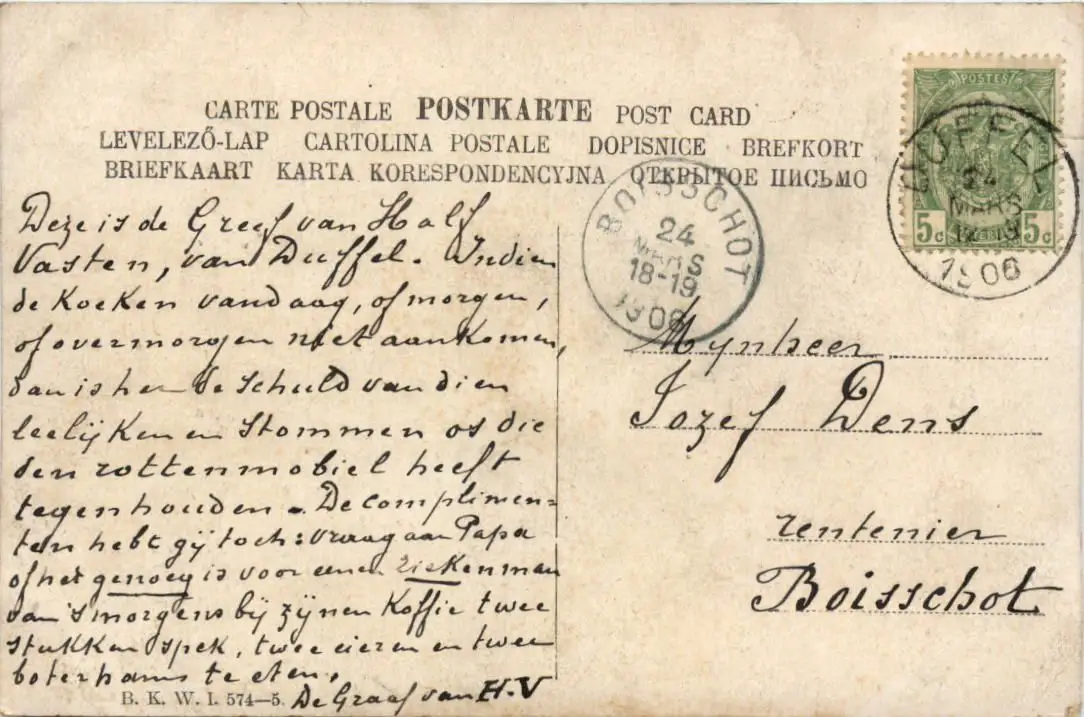 CARTE POSTALE POSTKARTE POST CARD
LEVELEZŐ-LAP CARTOLINA POSTALE DOPISNICE BREFKORT
BRIEFKAART KARTA KORESPONDENCYJNA ОТКРЫТОЕ ПИСЬМО
POSTES
5c 5c
DUFFEL
24
MARS
1906
BOISSCHOT
24
MARS
18-19
1906
Deze is de Greef van Half
Vasten, van Duffel. Indien
de Koeken vandaag, of morgen,
of overmorgen niet aankomen,
dan is her de schuld van dien
leelijken en stommen os die
den rottenmobiel heeft
tegenhouden - De complimen=
ten hebt gij toch: vraag aan Papa
of het genoeg is voor eenen ziekenman
van 's morgens bij zijnen Koffie twee
stukken spek, twee eieren en twee
boterhams te eten,
De Graaf van H-V
Mynheer
Jozef Dens
rentenier
Boisschot
B. K. W. I. 574-5